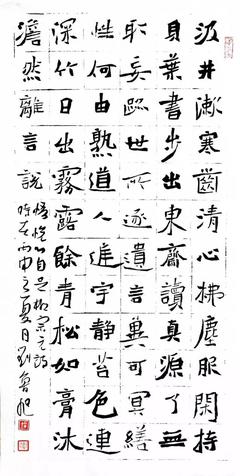 汲井漱寒齒清心拂塵服閑持
貝葉書步出東齋讀真源了無
取妄跡世所逐遺言冀可冥繕
性何由熟道人庭宇靜苔色連
深竹日出霧露餘青松如膏沐
澹然離言說
悟悅心自足柳宗元詩
時在丙申之夏日劉魯旭